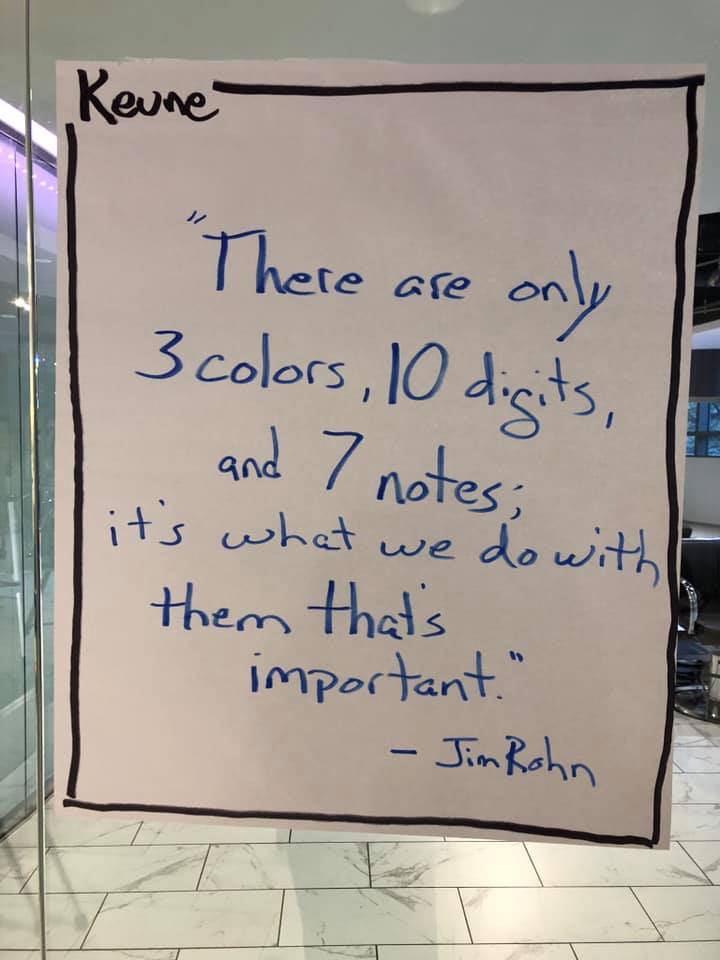 Keune
"There are only
3 colors, 10 digits,
and 7 notes;
it's what we do with
them that's
important."
- Jim Rohn